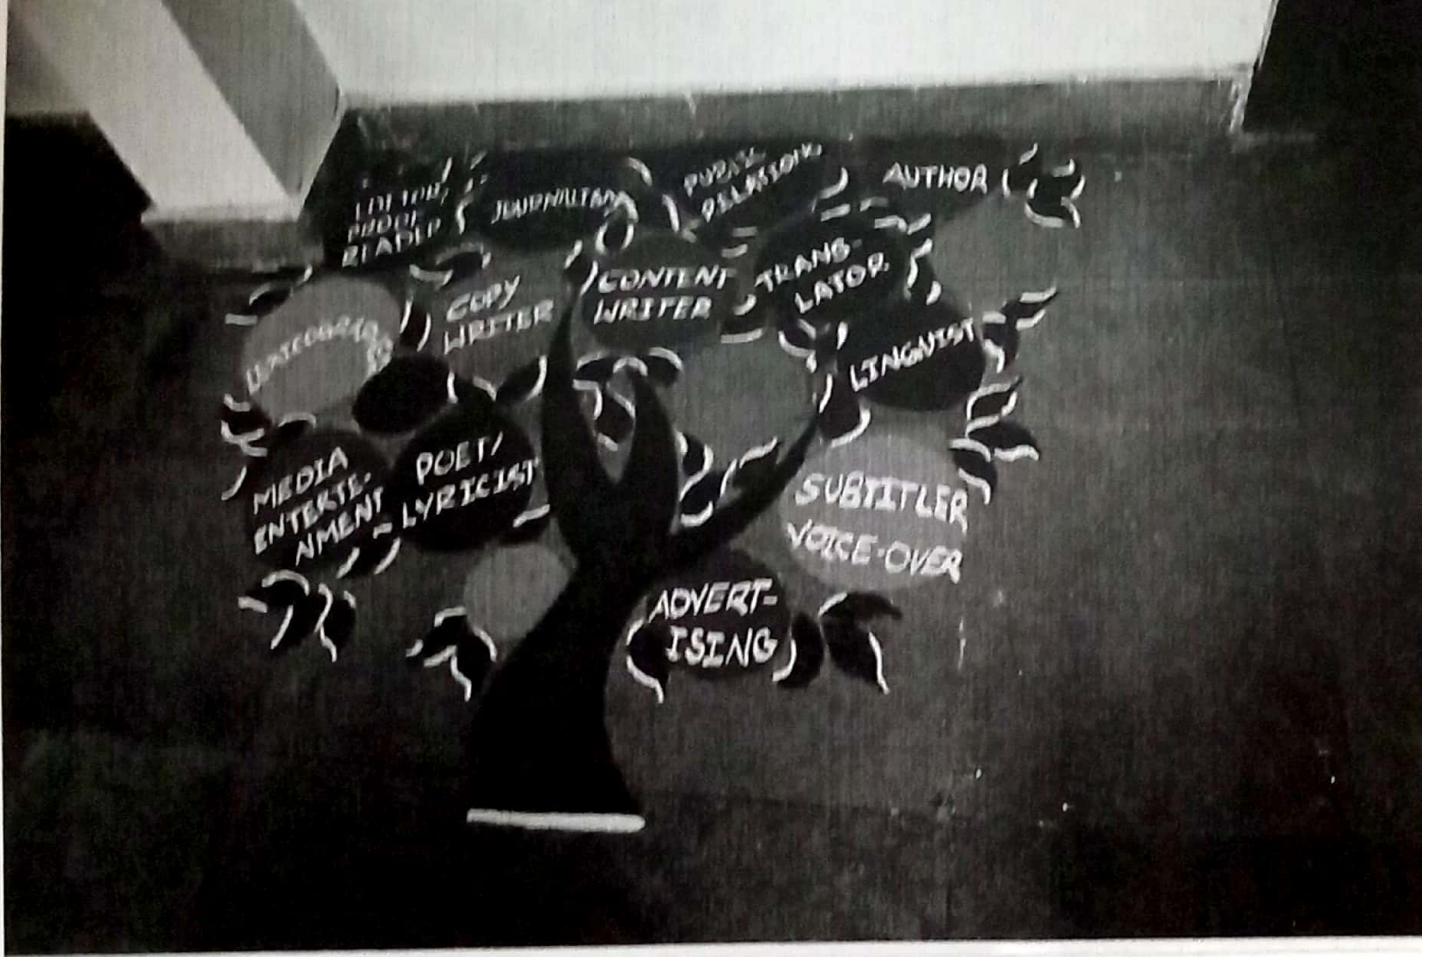 EDITOR/
PROOF
READER
JOURNALISM
PUBLIC
RELATIONS
AUTHOR
COPY
WRITER
CONTENT
WRITER
TRANS-
LATOR
LINGUIST
MEDIA
ENTERTE-
NMENT
POET/
LYRICIST
SUBTITLER
VOICE-OVER
ADVERT-
ISING